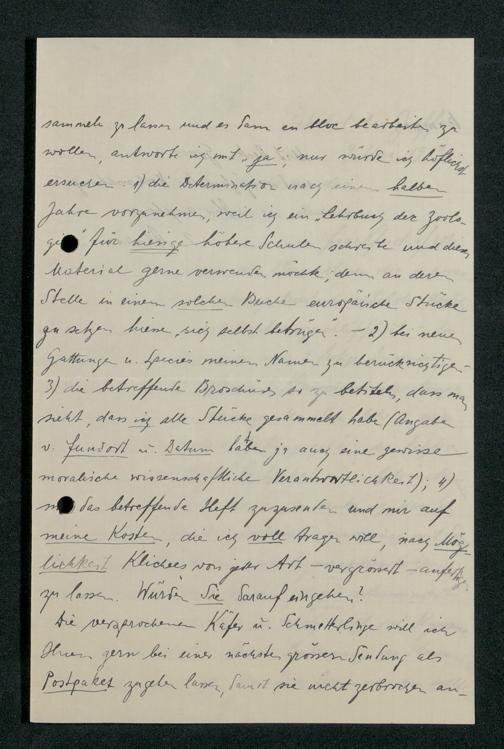 sammeln zu lassen und es dann en bloc bearbeiten zu
wollen, antworte ich mit „ja“, nur würde ich höflichst
ersuchen 1) die Determination nach einem halben
Jahre vorzunehmen, weil ich ein „Lehrbuch der Zoolo-
gie“ für hiesige höhere Schulen schreibe und dieses
Material gerne verwenden möchte, denn an deren
Stelle in einem solchen Buche europäische Stücke
zu setzen hiesse „sich selbst betrügen“. — 2) bei neuen
Gattungen u. Species meinen Namen zu berücksichtigen
3) die betreffende Broschüre so zu betiteln, dass man
sieht, dass ich alle Stücke gesammelt habe (Angabe
v. Fundort u. Datum haben ja auch eine gewisse
moralische wissenschaftliche Verantwortlichkeit); 4)
mir das betreffende Heft zuzusenden und mir auf
meine Kosten, die ich voll tragen will, nach Mög-
lichkeit Klichees von jeder Art — vergrössert — anfertigen
zu lassen. Würden Sie darauf eingehen?
Die versprochenen Käfer u. Schmetterlinge will ich
Ihnen gern bei einer nächsten grössern Sendung als
Postpaket zugehen lassen, damit sie nicht zerbrochen an-